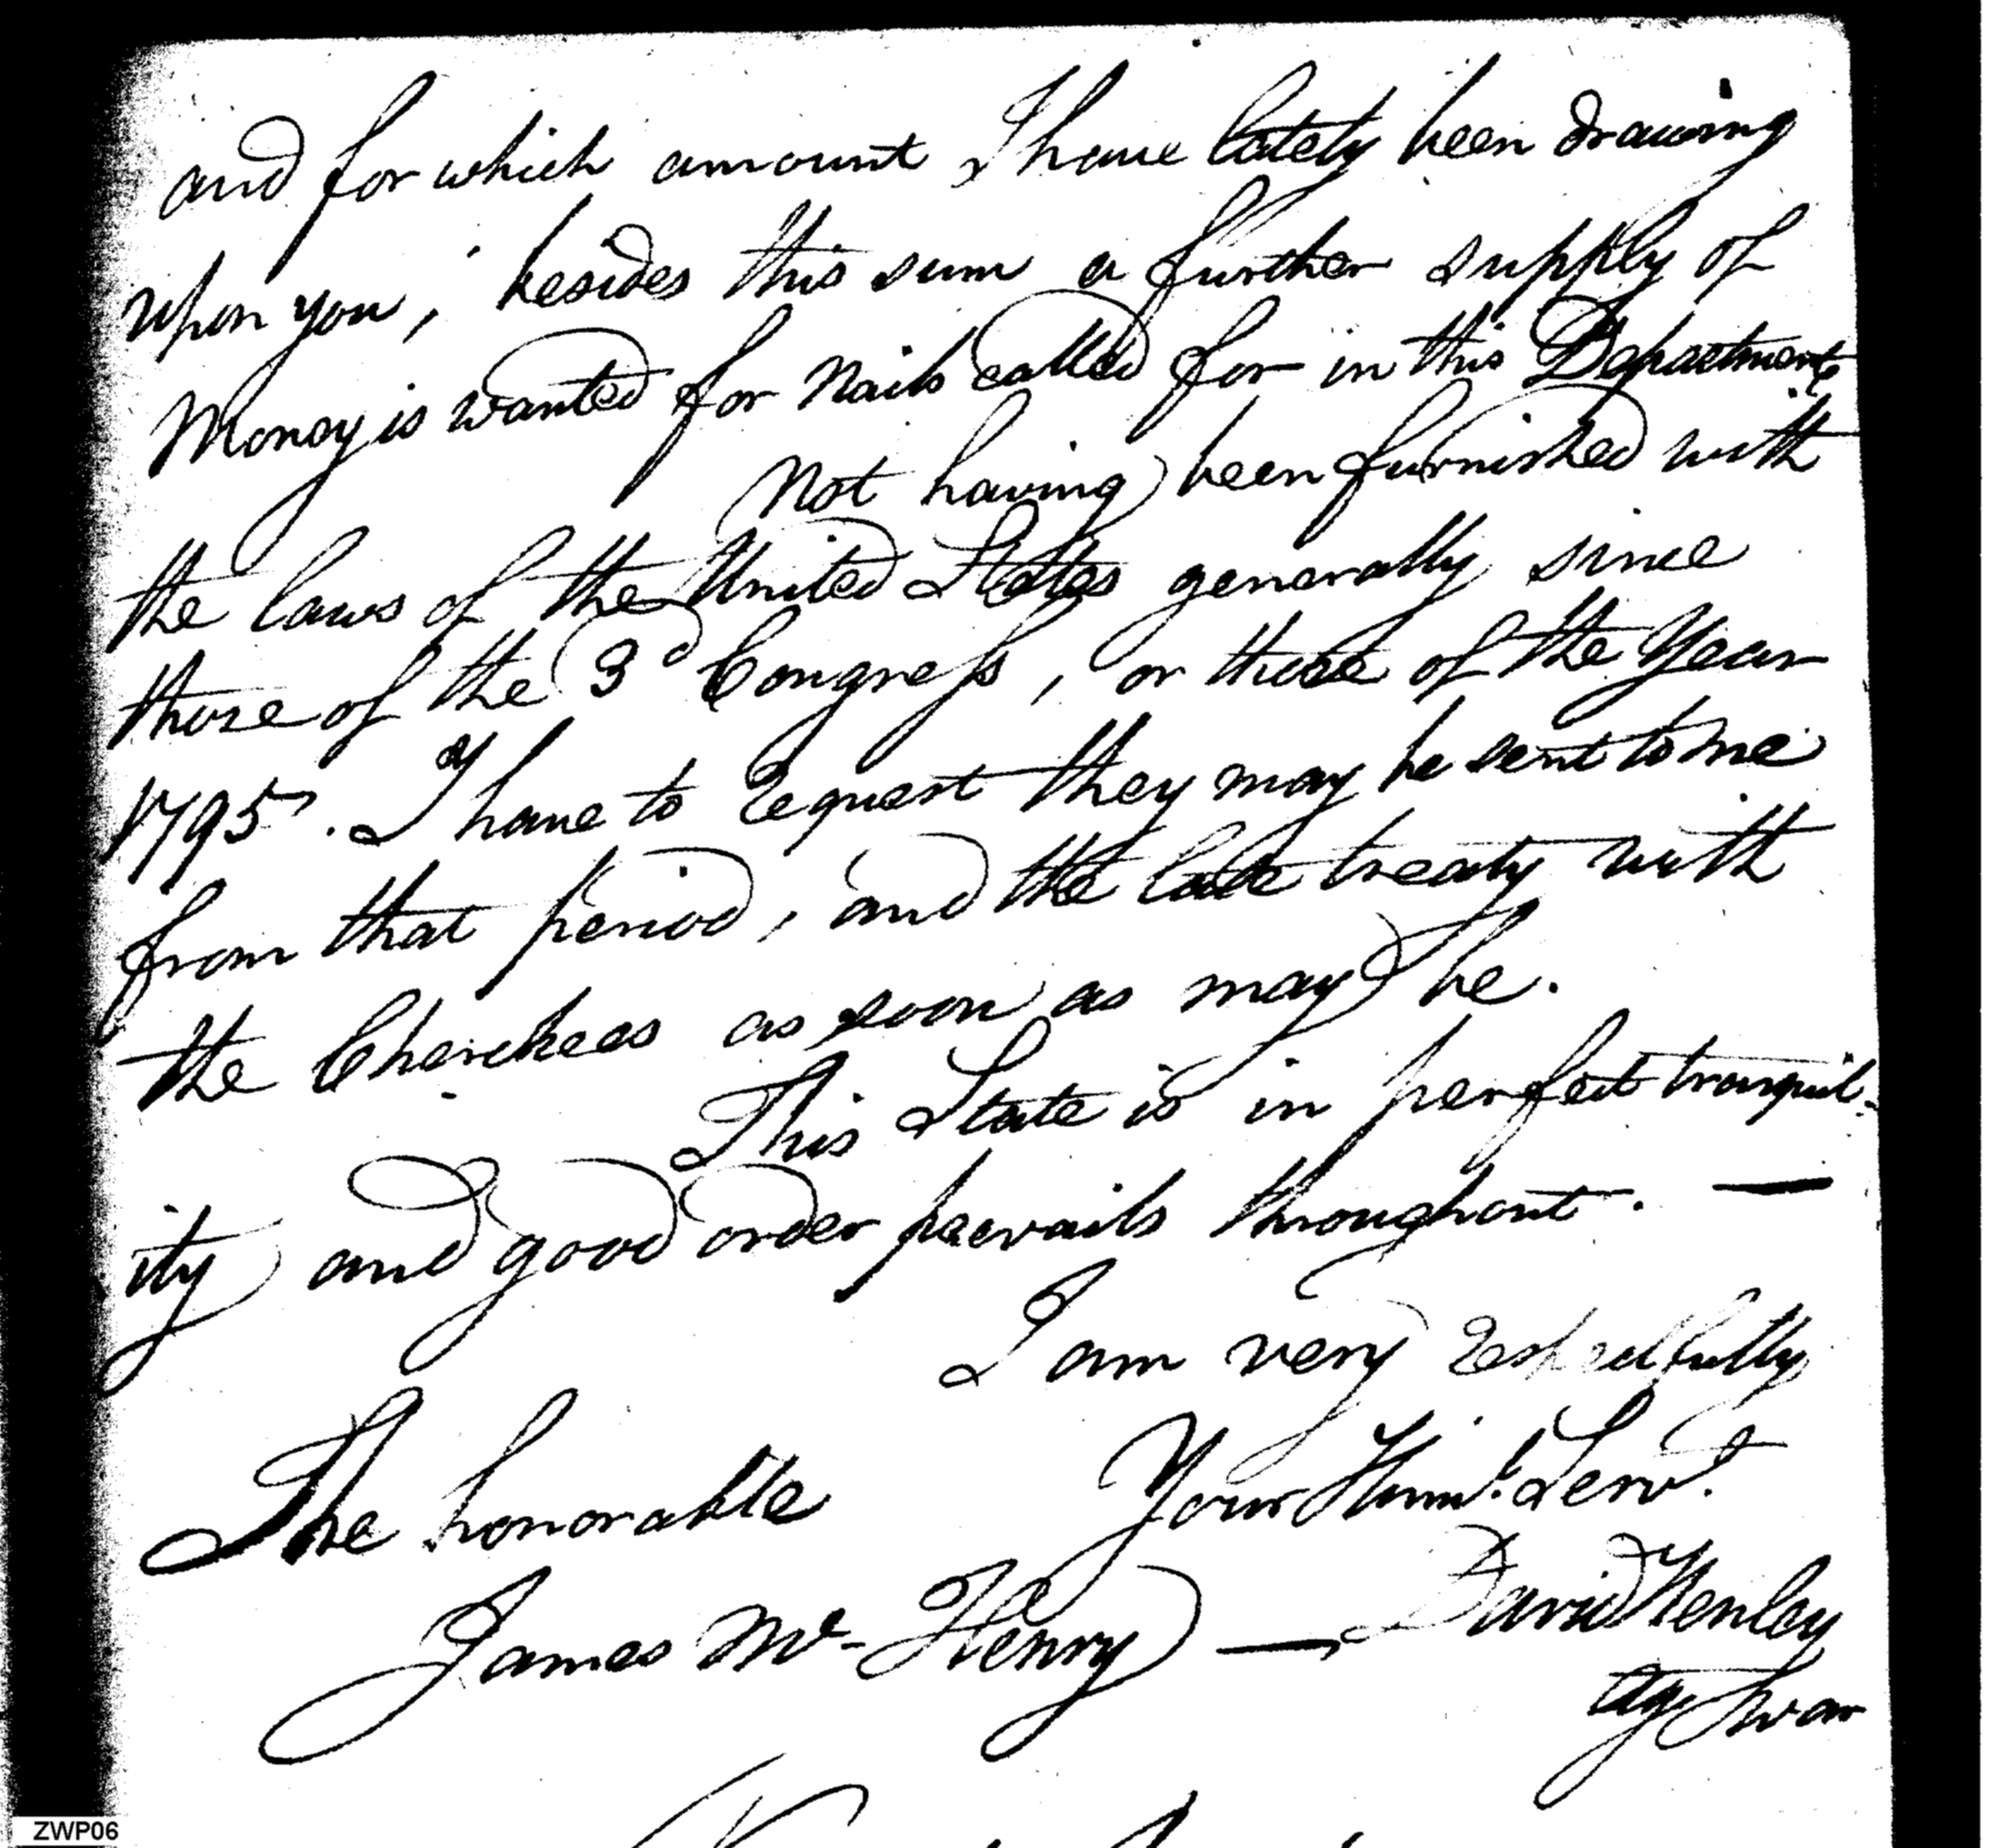 and for which amount I have lately been drawing
upon you, besides this sum a further supply of
Money is wanted for Nails called for in this Department
Not having been furnished with
the laws of the United States generally since
those of the 3d Congress, or those of the Year
1795. I have to request they may be sent to me
from that period, and the late treaty with
the Cherokees as soon as may be.
This State is in perfect tranquil-
ity and good order prevails throughout. —
I am very respectfully
The honorable Your Huml. Servt.
James Mc Henry — David Henley
Agt War
ZWP06